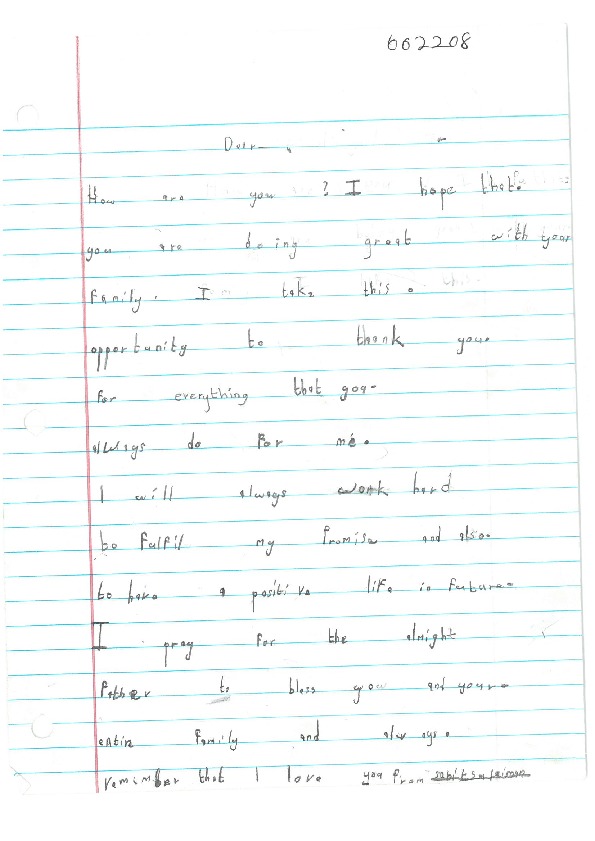 662208
Dear
How are you ? I hope that
you are doing great with your
Family. I take this
opportunity to thank you
for everything that you
always do For me.
I will always work hard
to Fulfil my Promise and also
to have a positive life in Future
I pray For the almight
Father to bless you and your
entir Family and always
remimber that I love you From